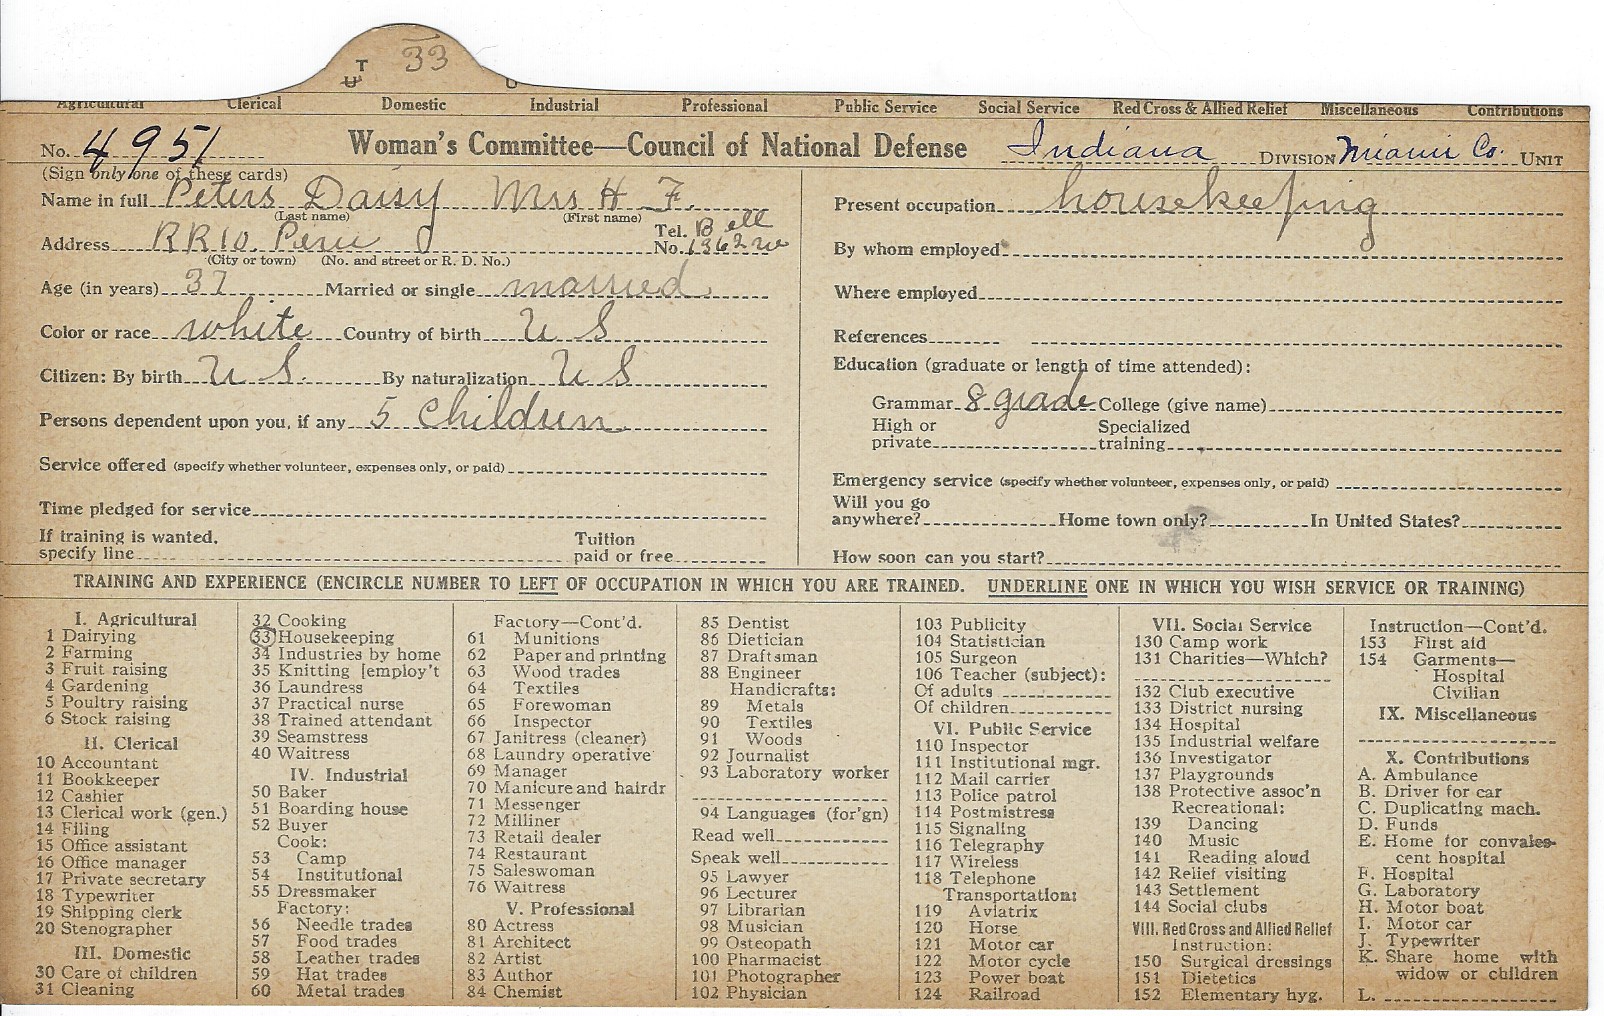 T 33
U U
Agricultural Clerical Domestic Industrial Professional Public Service Social Service Red Cross & Allied Relief Miscellaneous Contributions
No. 4951 Woman's Committee—Council of National Defense Indiana DIVISION Miami Co. UNIT
(Sign only one of these cards)
Name in full Peters Daisy Mrs H F.
(Last name) (First name)
Address RR10 Peru Tel. No. Bell 1362
(City or town) (No. and street or R. D. No.)
Age (in years) 37 Married or single married
Color or race white Country of birth U S
Citizen: By birth U S. By naturalization U S
Persons dependent upon you, if any 5 children
Service offered (specify whether volunteer, expenses only, or paid)
Time pledged for service
If training is wanted, specify line Tuition paid or free
Present occupation housekeeping
By whom employed
Where employed
References
Education (graduate or length of time attended):
Grammar 8 grade College (give name)
High or private Specialized training
Emergency service (specify whether volunteer, expenses only, or paid)
Will you go anywhere? Home town only? In United States?
How soon can you start?
TRAINING AND EXPERIENCE (ENCIRCLE NUMBER TO LEFT OF OCCUPATION IN WHICH YOU ARE TRAINED. UNDERLINE ONE IN WHICH YOU WISH SERVICE OR TRAINING)
I. Agricultural
1 Dairying
2 Farming
3 Fruit raising
4 Gardening
5 Poultry raising
6 Stock raising
II. Clerical
10 Accountant
11 Bookkeeper
12 Cashier
13 Clerical work (gen.)
14 Filing
15 Office assistant
16 Office manager
17 Private secretary
18 Typewriter
19 Shipping clerk
20 Stenographer
III. Domestic
30 Care of children
31 Cleaning
32 Cooking
33 Housekeeping
34 Industries by home
35 Knitting [employ't
36 Laundress
37 Practical nurse
38 Trained attendant
39 Seamstress
40 Waitress
IV. Industrial
50 Baker
51 Boarding house
52 Buyer
Cook:
53 Camp
54 Institutional
55 Dressmaker
Factory:
56 Needle trades
57 Food trades
58 Leather trades
59 Hat trades
60 Metal trades
Factory—Cont'd.
61 Munitions
62 Paper and printing
63 Wood trades
64 Textiles
65 Forewoman
66 Inspector
67 Janitress (cleaner)
68 Laundry operative
69 Manager
70 Manicure and hairdr
71 Messenger
72 Milliner
73 Retail dealer
74 Restaurant
75 Saleswoman
76 Waitress
V. Professional
80 Actress
81 Architect
82 Artist
83 Author
84 Chemist
85 Dentist
86 Dietician
87 Draftsman
88 Engineer
Handicrafts:
89 Metals
90 Textiles
91 Woods
92 Journalist
93 Laboratory worker
94 Languages (for'gn)
Read well
Speak well
95 Lawyer
96 Lecturer
97 Librarian
98 Musician
99 Osteopath
100 Pharmacist
101 Photographer
102 Physician
103 Publicity
104 Statistician
105 Surgeon
106 Teacher (subject):
Of adults
Of children
VI. Public Service
110 Inspector
111 Institutional mgr.
112 Mail carrier
113 Police patrol
114 Postmistress
115 Signaling
116 Telegraphy
117 Wireless
118 Telephone
Transportation:
119 Aviatrix
120 Horse
121 Motor car
122 Motor cycle
123 Power boat
124 Railroad
VII. Social Service
130 Camp work
131 Charities—Which?
132 Club executive
133 District nursing
134 Hospital
135 Industrial welfare
136 Investigator
137 Playgrounds
138 Protective assoc'n
Recreational:
139 Dancing
140 Music
141 Reading aloud
142 Relief visiting
143 Settlement
144 Social clubs
VIII. Red Cross and Allied Relief
Instruction:
150 Surgical dressings
151 Dietetics
152 Elementary hyg.
Instruction—Cont'd.
153 First aid
154 Garments—
Hospital
Civilian
IX. Miscellaneous
X. Contributions
A. Ambulance
B. Driver for car
C. Duplicating mach.
D. Funds
E. Home for convales-
cent hospital
F. Hospital
G. Laboratory
H. Motor boat
I. Motor car
J. Typewriter
K. Share home with
widow or children
L.